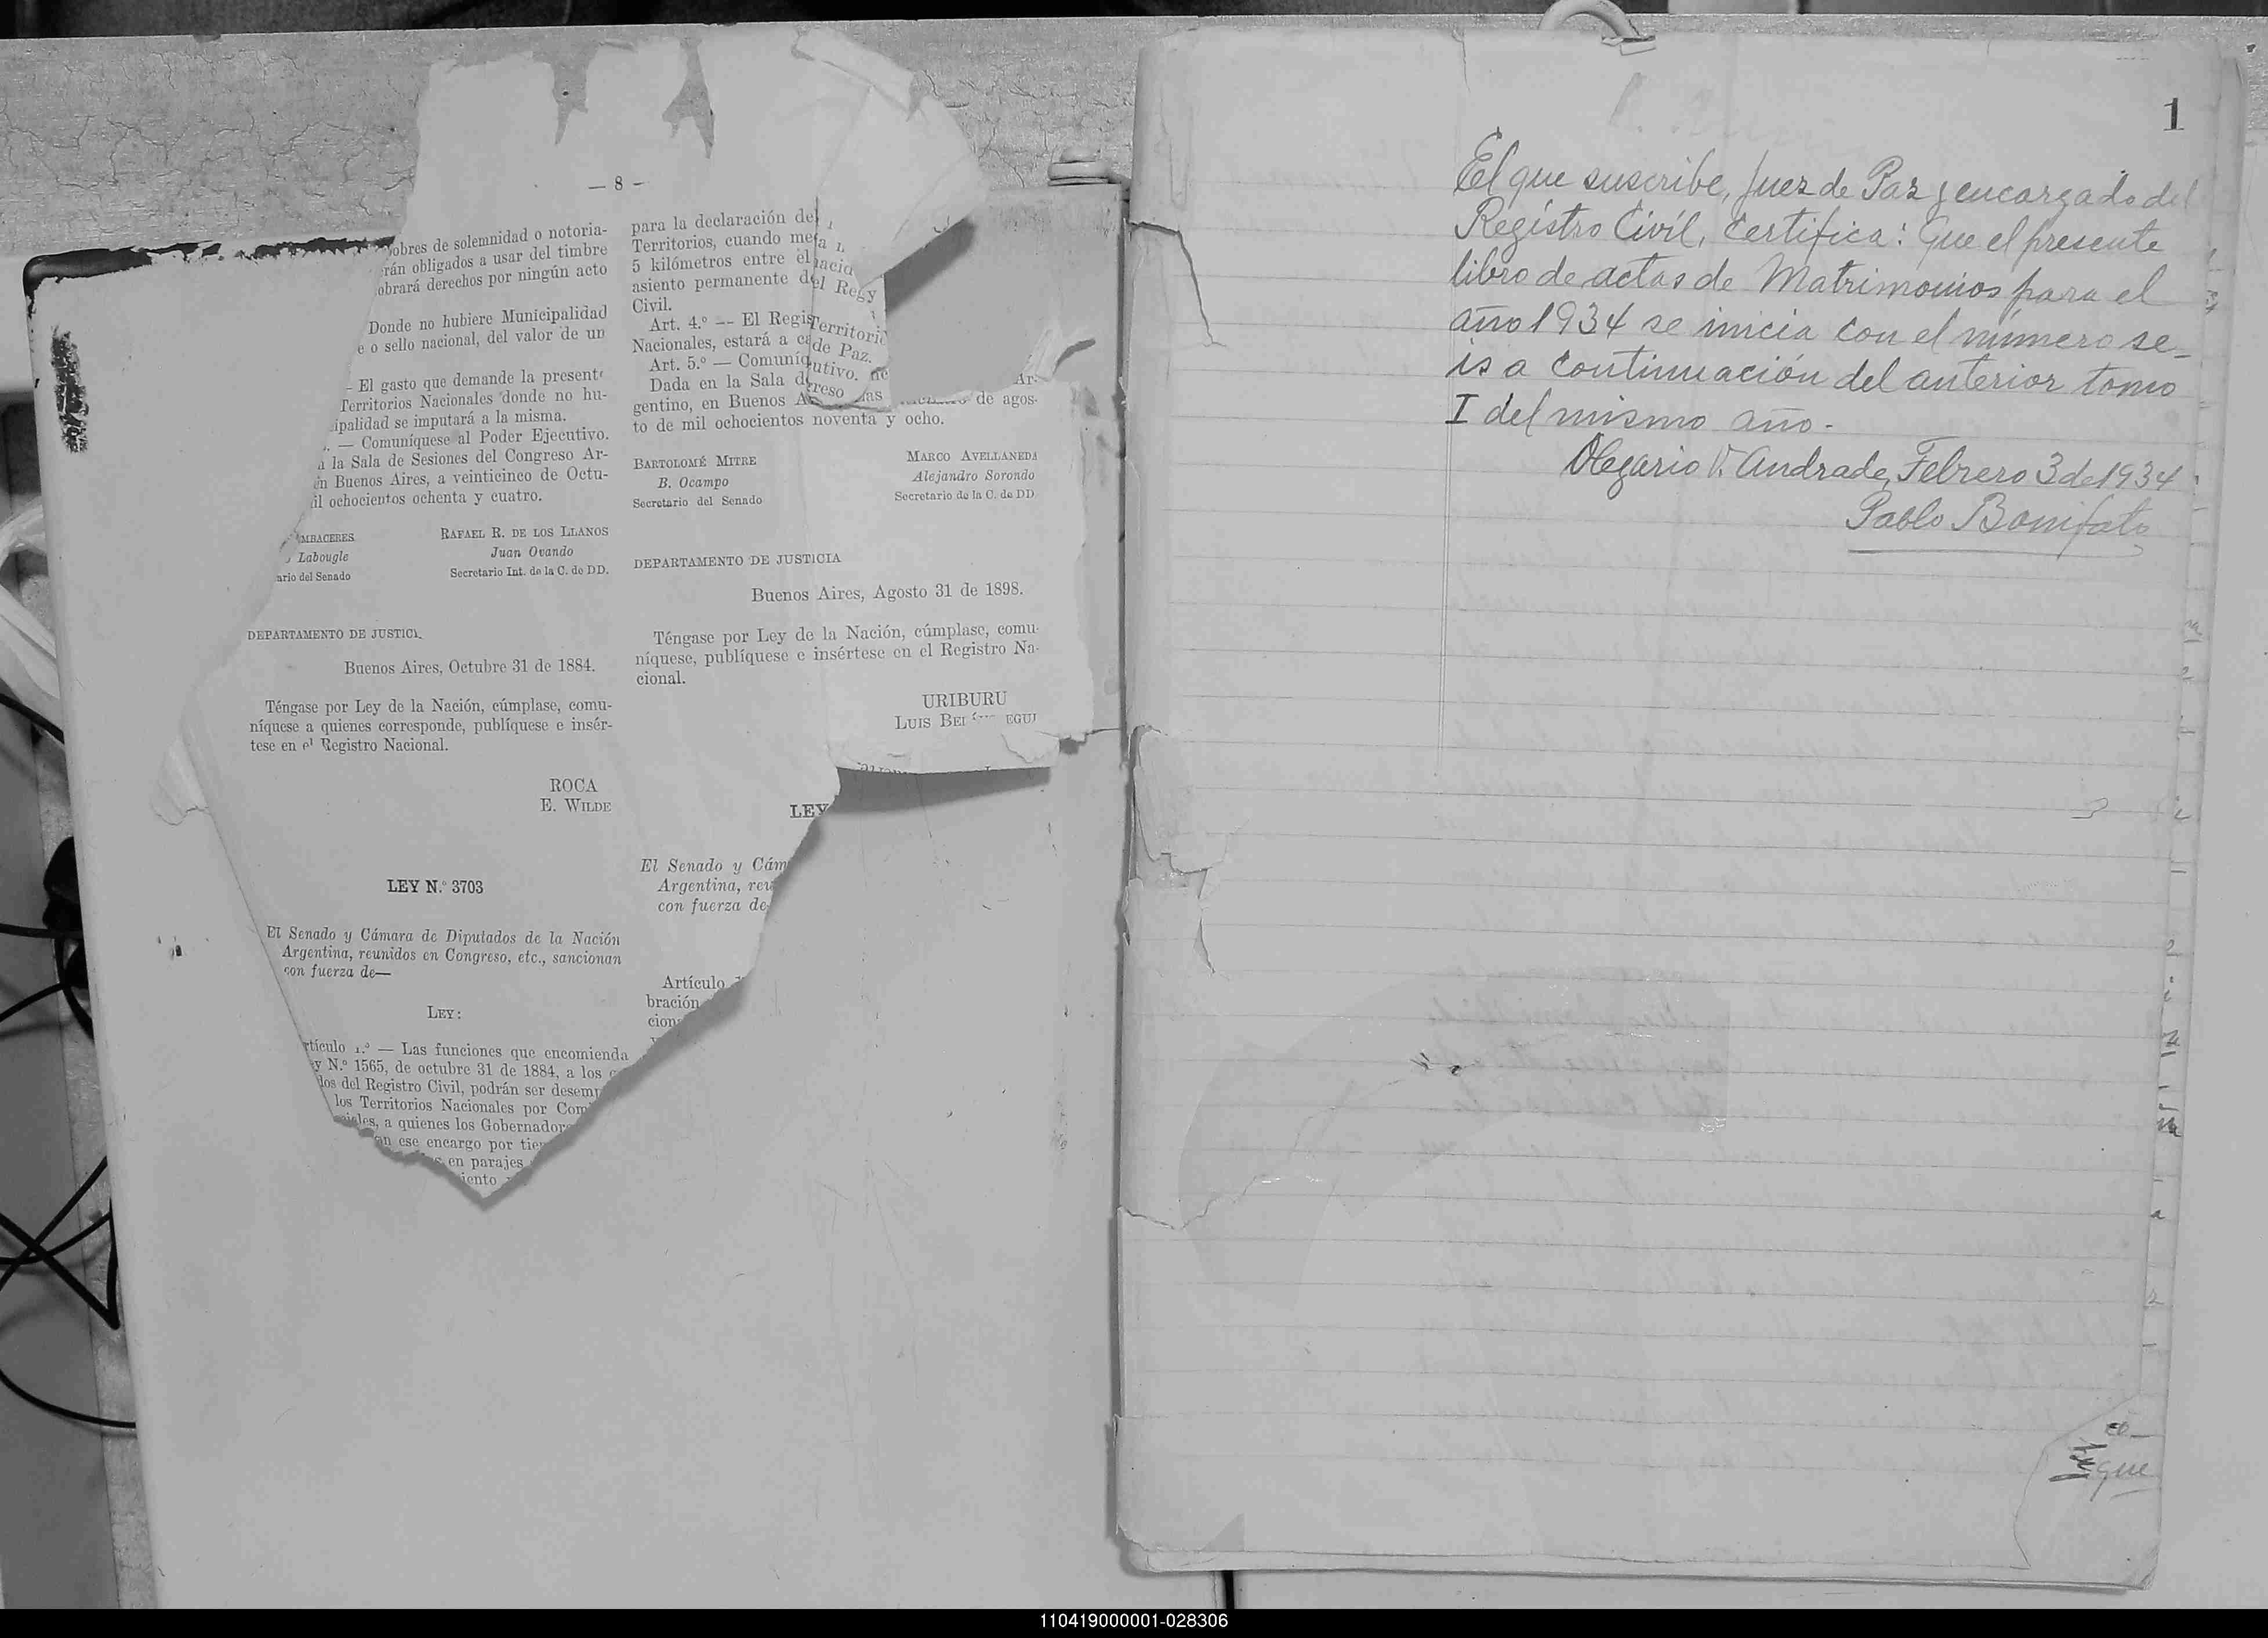 — 8 —
pobres de solemnidad o notoria-
rán obligados a usar del timbre
obrará derechos por ningún acto
Donde no hubiere Municipalidad
e o sello nacional, del valor de un
– El gasto que demande la presente
Territorios Nacionales donde no hu-
ipalidad se imputará a la misma.
. — Comuníquese al Poder Ejecutivo.
n la Sala de Sesiones del Congreso Ar-
en Buenos Aires, a veinticinco de Octu-
il ochocientos ochenta y cuatro.
MBACERES RAFAEL R. DE LOS LLANOS
Labougle Juan Ovando
ario del Senado Secretario Int. de la C. de DD.
DEPARTAMENTO DE JUSTICI
Buenos Aires, Octubre 31 de 1884.
Téngase por Ley de la Nación, cúmplase, comu-
níquese a quienes corresponde, publíquese e insér-
tese en el Registro Nacional.
ROCA
E. WILDE
LEY N.º 3703
El Senado y Cámara de Diputados de la Nación
Argentina, reunidos en Congreso, etc., sancionan
con fuerza de—
LEY:
rtículo 1.º — Las funciones que encomienda
y N.º 1565, de octubre 31 de 1884, a los
dos del Registro Civil, podrán ser desem
los Territorios Nacionales por Com
iales, a quienes los Gobernador
n ese encargo por tie
en parajes
iento
para la declaración de
Territorios, cuando me
5 kilómetros entre el
asiento permanente d
Civil.
Art. 4.º -- El Regis
Nacionales, estará a c
Art. 5.º — Comuníq
Dada en la Sala d Ar-
gentino, en Buenos A de agos-
to de mil ochocientos noventa y ocho.
acid
el Reg
Territori
de Paz.
utivo.
reso
BARTOLOMÉ MITRE MARCO AVELLANEDA
B. Ocampo Alejandro Sorondo
Secretario del Senado Secretario de la C. de DD
DEPARTAMENTO DE JUSTICIA
Buenos Aires, Agosto 31 de 1898.
Téngase por Ley de la Nación, cúmplase, comu-
níquese, publíquese e insértese en el Registro Na-
cional.
URIBURU
LUIS BEL EGUI
LEY
El Senado y Cám
Argentina, reu
con fuerza de
Artículo
bración
cion
1
El que suscribe, Juez de Paz y encargado del
Registro Civil, Certifica: Que el presente
libro de actas de Matrimonios para el
año 1934 se inicia con el número se-
is a continuación del anterior tomo
I del mismo año.-
Olegario V. Andrade, Febrero 3 de 1934
Pablo Bonifato
co-
que
110419000001-028306